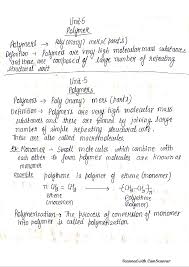 Unit-5
Polymer
Polymers → Poly (many) mers (parts)
Definition → Polymers are very high molecular mass substances
and these are composed of large number of repeating
structural unit
Unit-5
Polymers
Polymers → Poly (many) mers (parts)
Definition → Polymers are very high molecular mass
substances and these are formed by joining large
number of simple repeating structural units.
These are also called macromolecules.
Monomer → Small molecules which combine with
each other to form polymer molecules are known as
monomer.
example polythene is polymer of ethene (monomer)
n CH2 = CH2 → -[-CH2-CH2-]-n
Ethene Polythene
(monomer) (Polymer)
Polymerisation → The process of conversion of monomer
into polymer is called polymerization.
Scanned with CamScanner